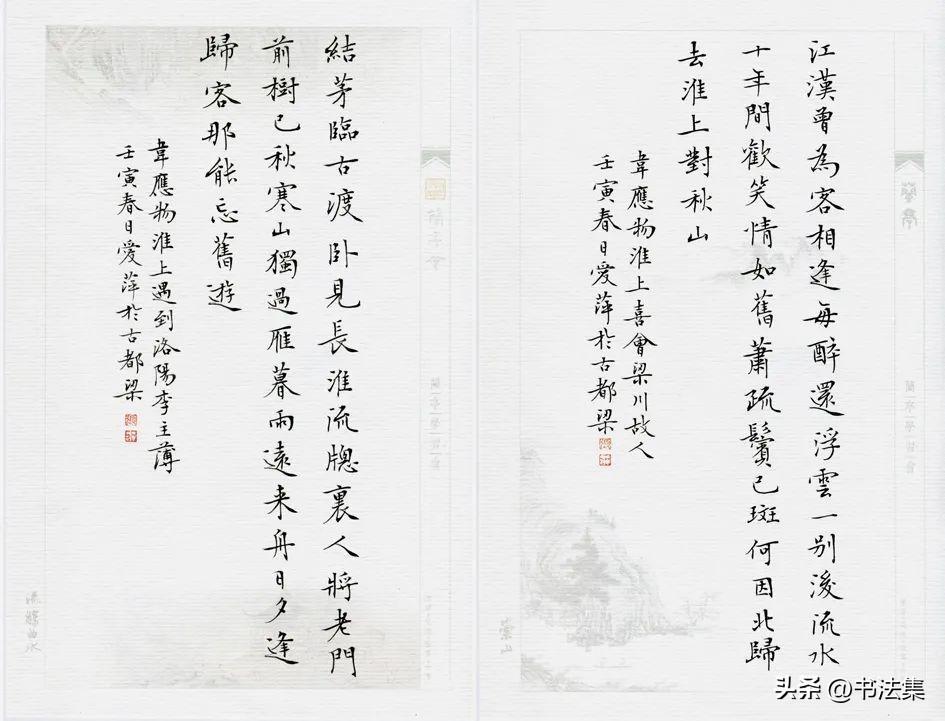 江漢曾為客相逢每醉還浮雲一別後流水
十年間歡笑情如舊蕭疏鬢已斑何因北歸
去淮上對秋山
韋應物淮上喜會梁川故人
壬寅春日愛萍於古都梁
崇山
結茅臨古渡卧見長淮流牕裏人將老門
前樹已秋寒山獨過雁暮雨遠来舟日夕逢
歸客那能忘舊遊
韋應物淮上遇到洛陽李主薄
壬寅春日愛萍於古都梁
流觴曲水
头条 @书法集